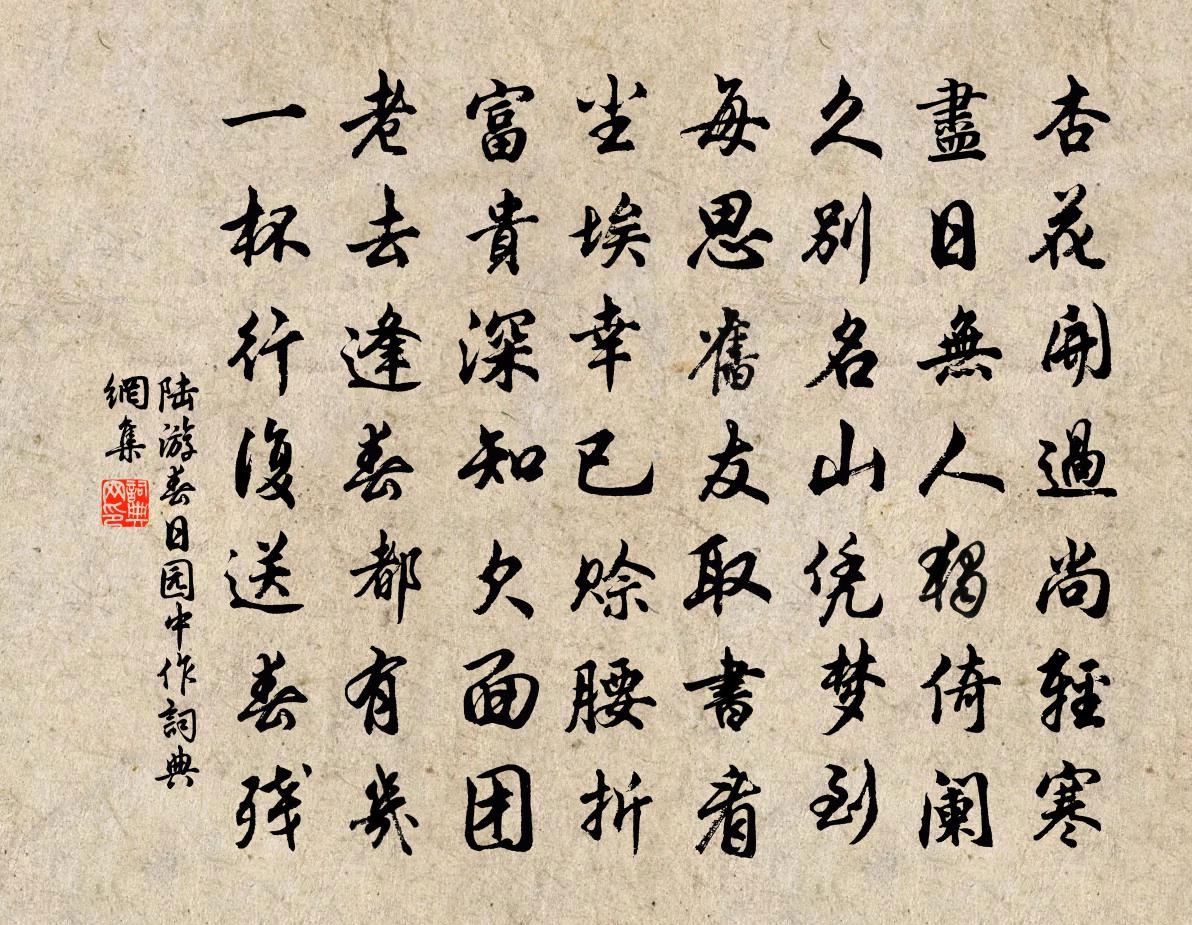 杏花開過尚輕寒
盡日無人獨倚闌
久別名山凭梦到
每思舊友取書看
尘埃幸已赊腰折
富貴深知欠面团
老去逢春都有幾
一杯行復送春残
陆游春日园中作詞典
網集
詞典
网印